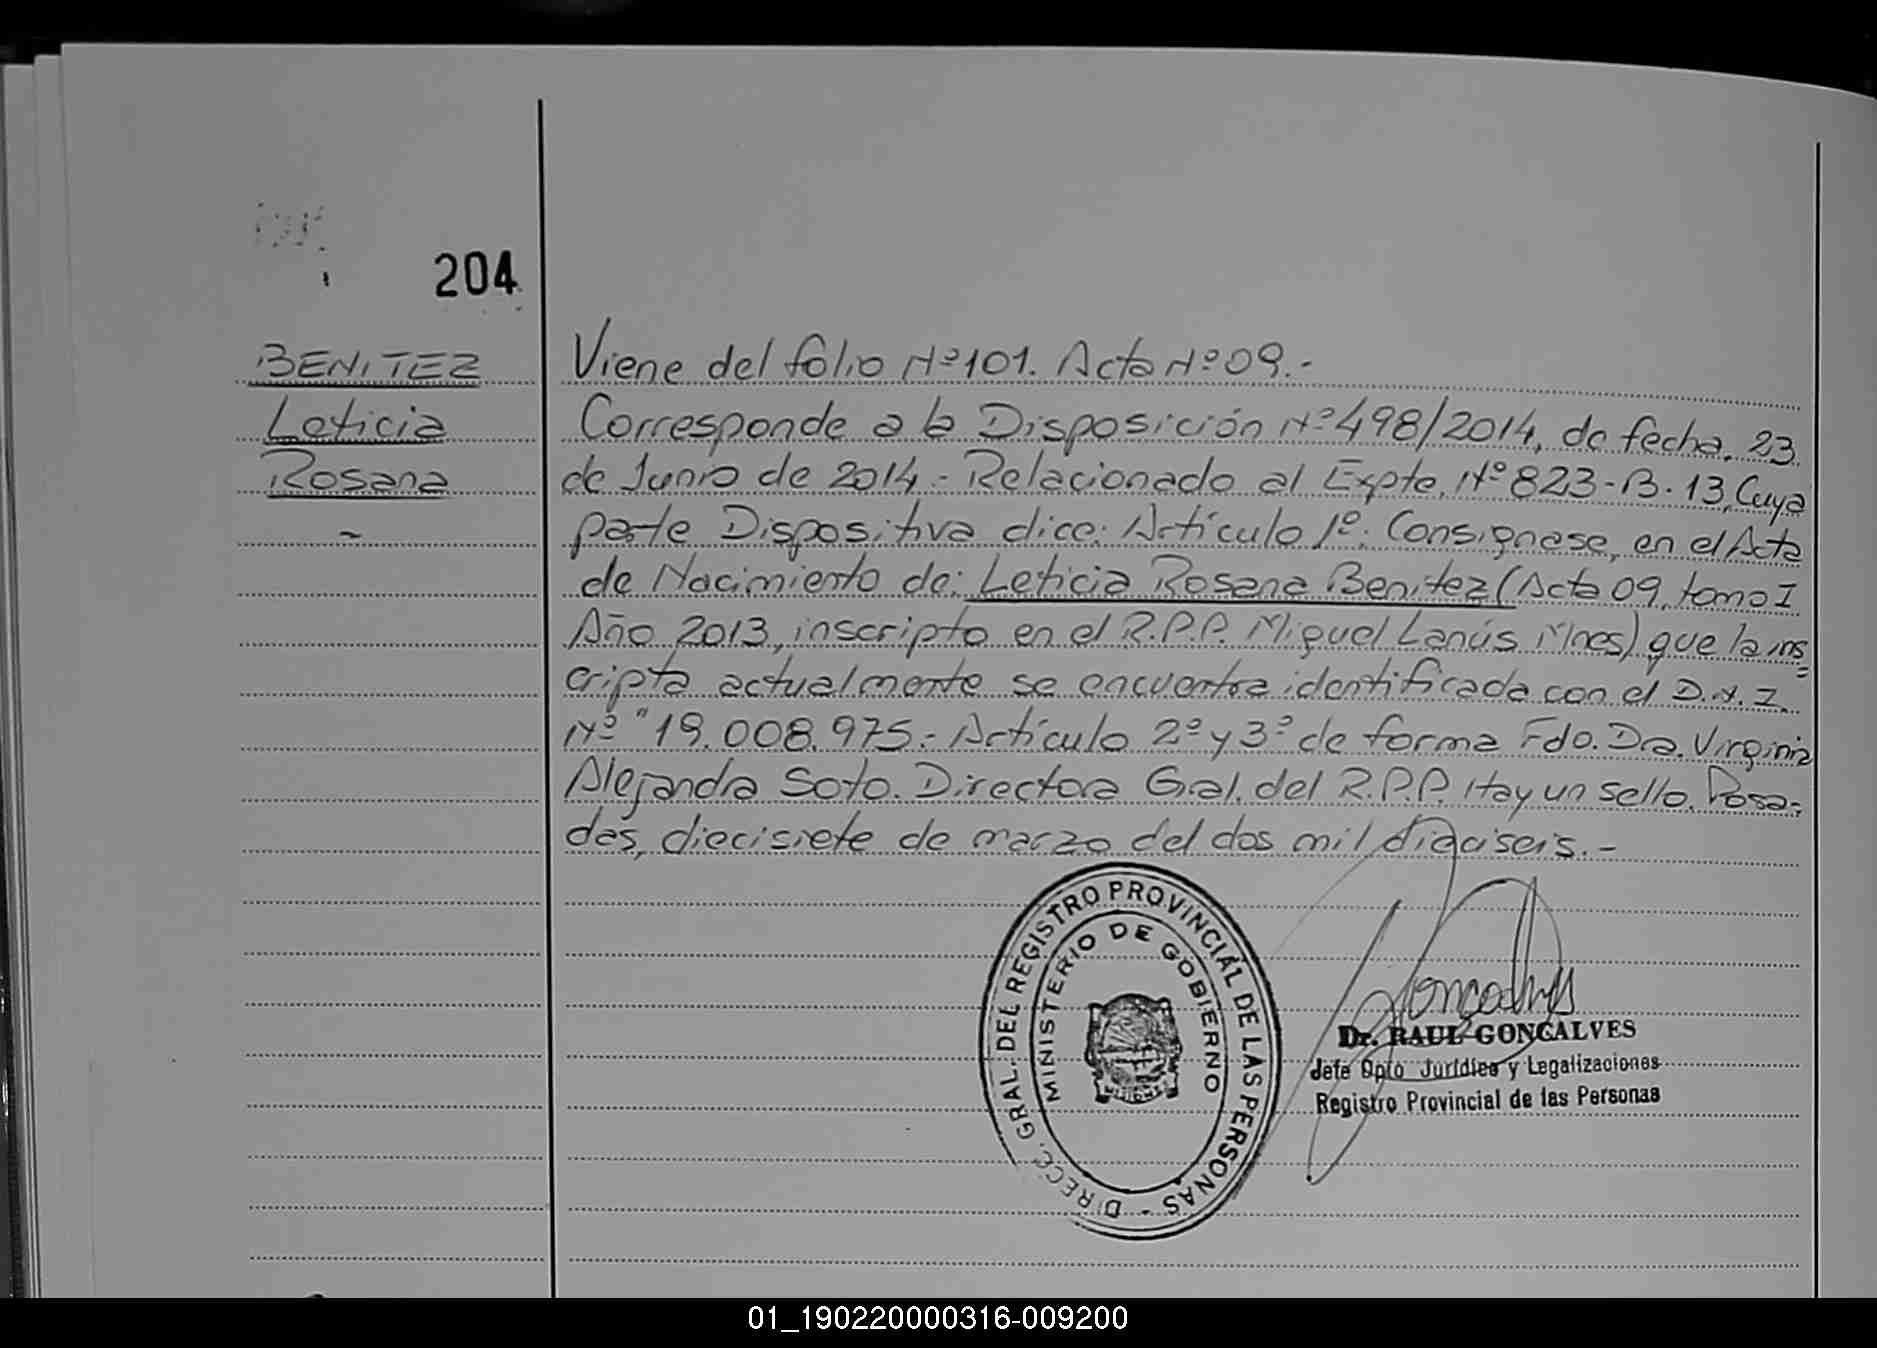 204
BENITEZ
Leticia
Rosana
Viene del folio Nº 101. Acta Nº 09.-
Corresponde a la Disposición Nº 498/2014, de fecha, 23
de Junio de 2014.- Relacionado al Expte. Nº 823-B-13, Cuya
parte Dispositiva dice: Artículo 1º: Consignese, en el Acta
de Nacimiento de: Leticia Rosana Benitez (Acta 09, tomo I
Año 2013, inscripto en el R.P.P. Miguel Lanús Mnes) que la ins
cripta actualmente se encuentra identificada con el D.N.I.
Nº "19.008.975.- Artículo 2º y 3º de forma Fdo. Dra. Virginia
Alejandra Soto. Directora Gral. del R.P.P. Hay un sello. Posa-
das, diecisiete de marzo del dos mil dieciseis.-
DIRECC. GRAL. DEL REGISTRO PROVINCIAL DE LAS PERSONAS -
MINISTERIO DE GOBIERNO
MISIONES
Goncalves
Dr. RAUL GONCALVES
Jefe Dpto Jurídico y Legalizaciones
Registro Provincial de las Personas
01_190220000316-009200